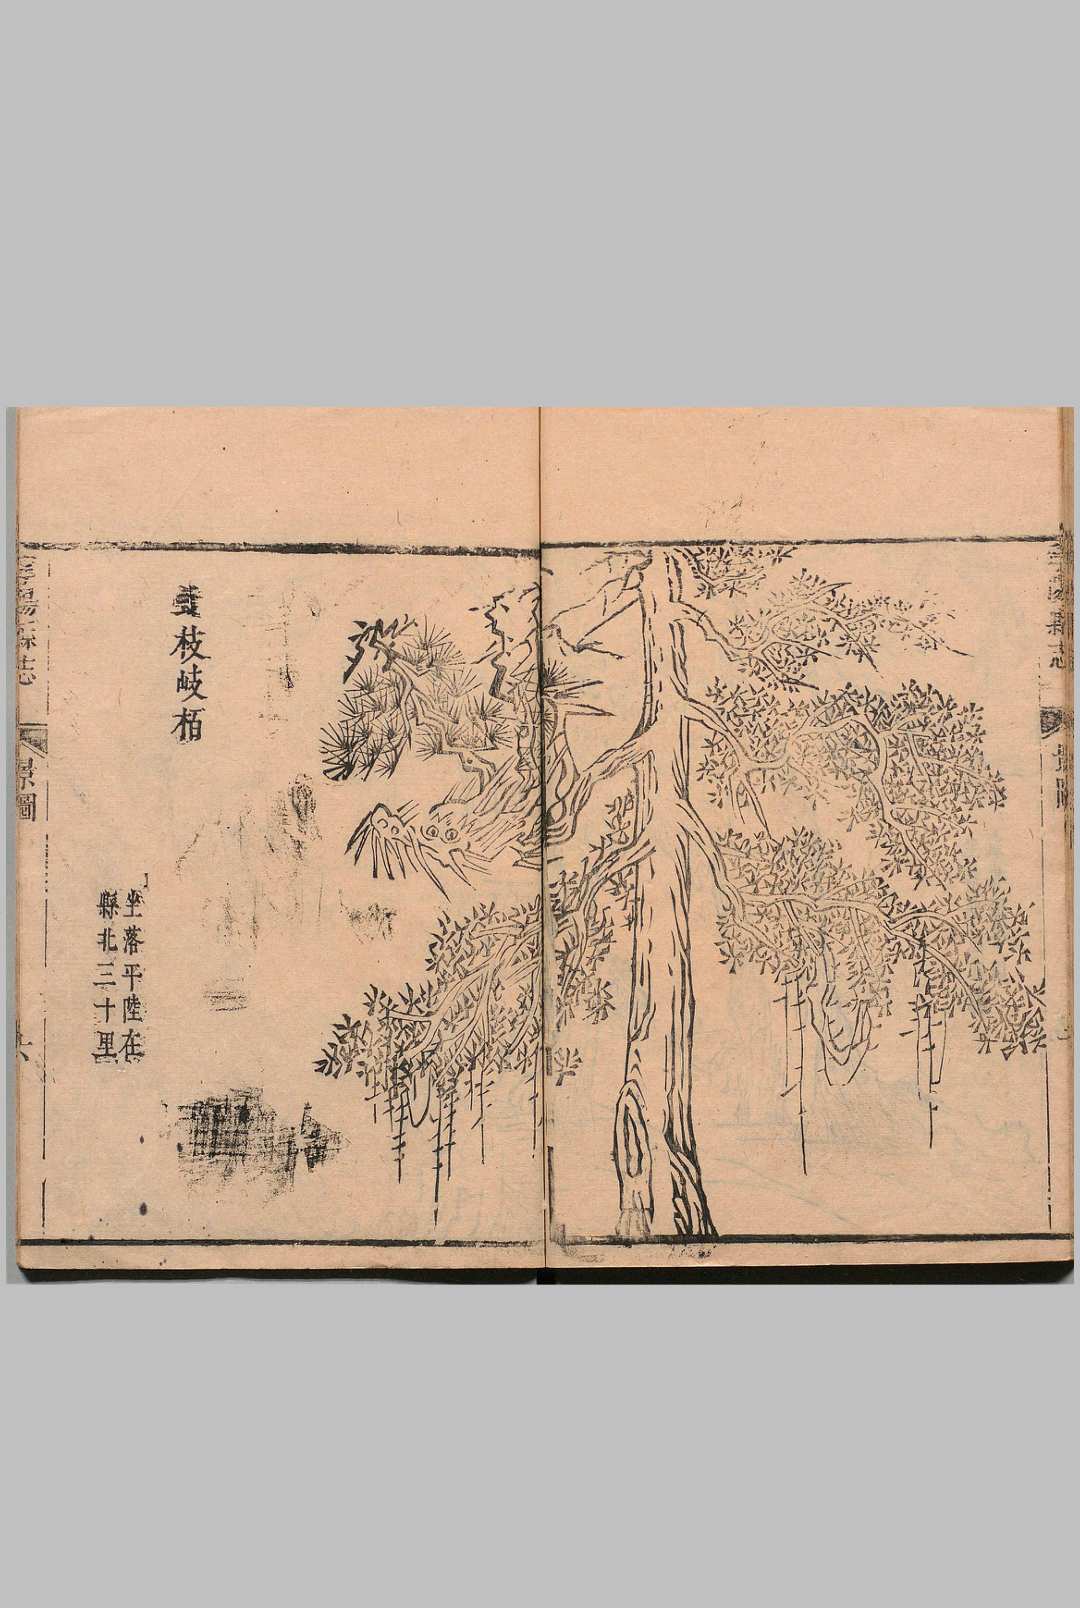 縣志
景圖
枝岐栢
坐落平陸在
縣北三十里
縣志
景圖